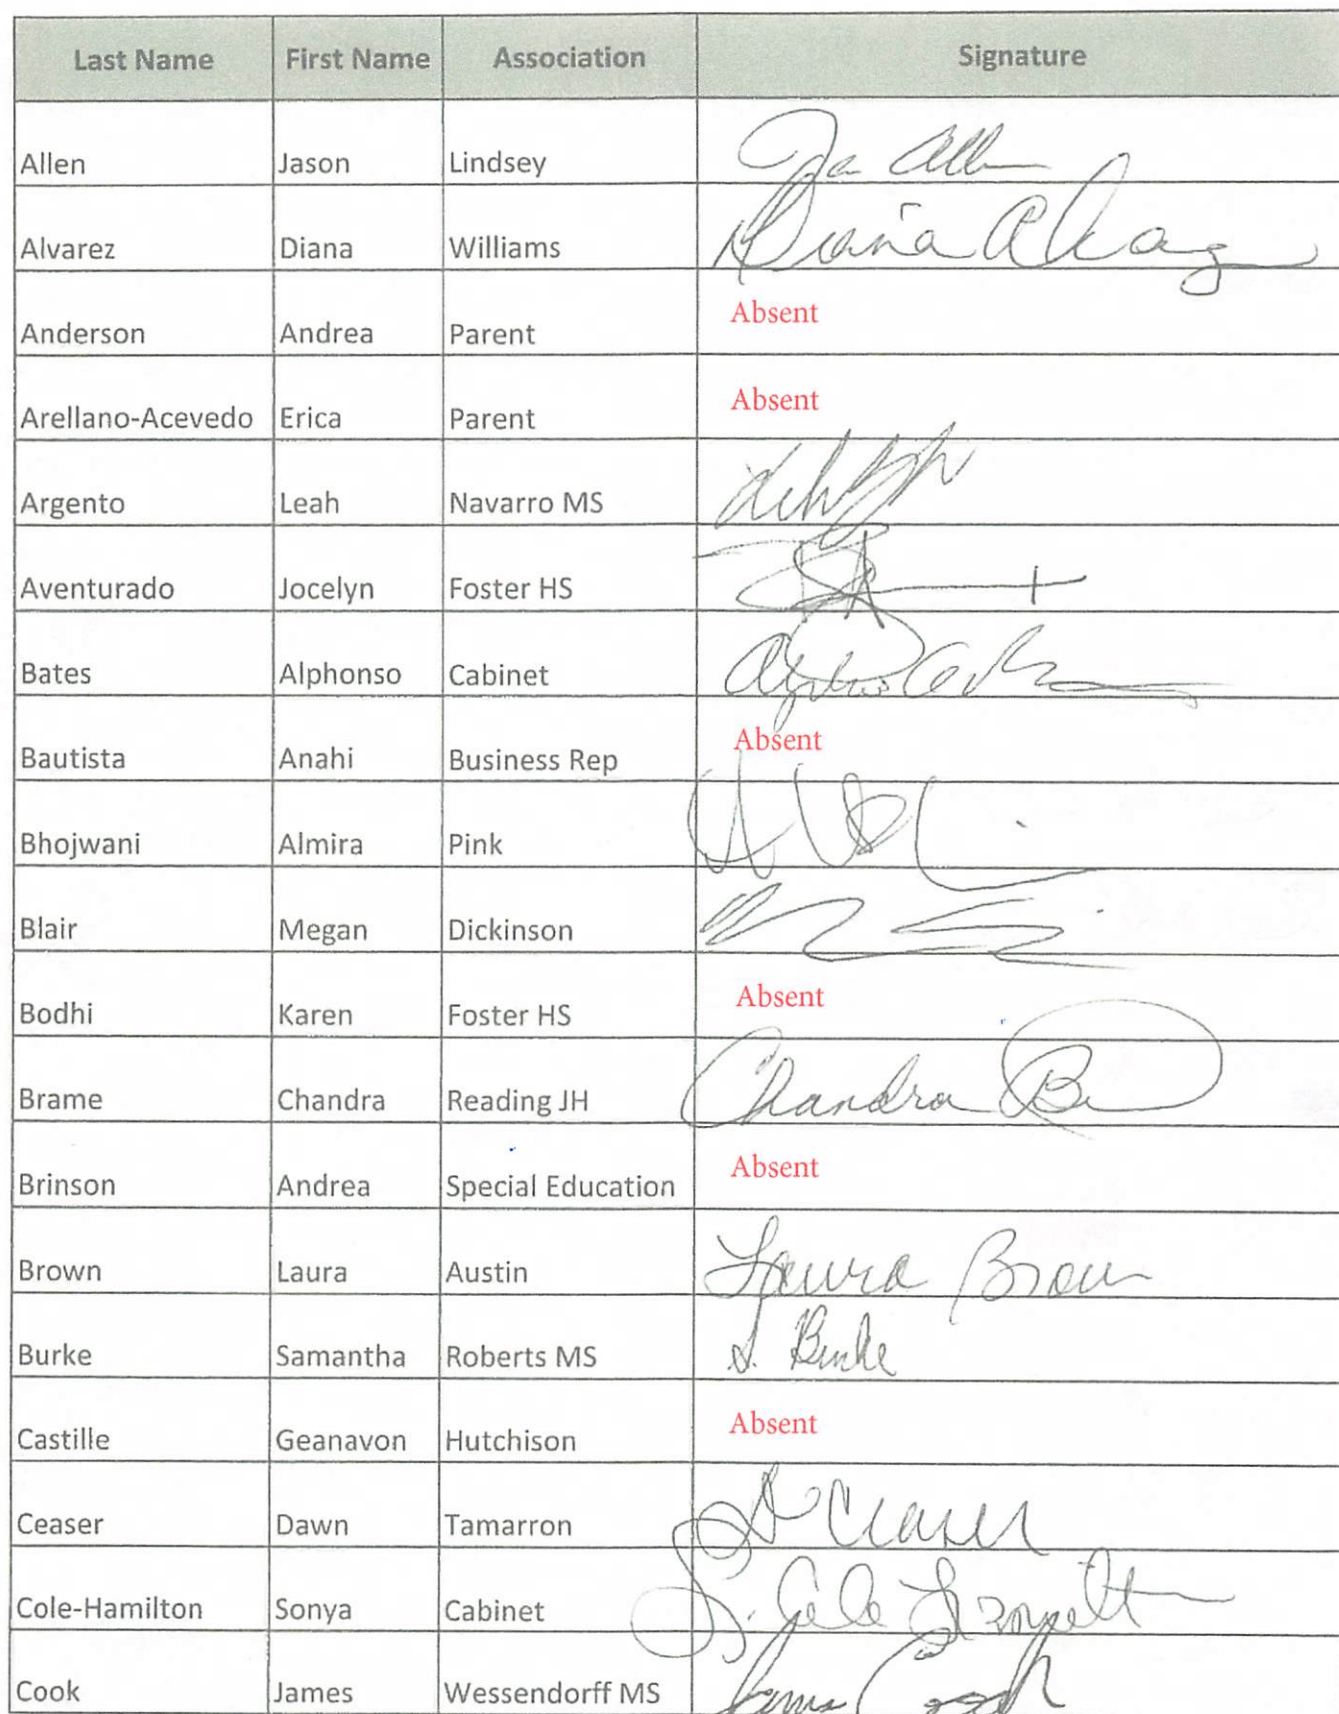 Last Name First Name Association Signature
Allen Jason Lindsey
Alvarez Diana Williams Diana Alvarez
Anderson Andrea Parent Absent
Arellano-Acevedo Erica Parent Absent
Argento Leah Navarro MS
Aventurado Jocelyn Foster HS
Bates Alphonso Cabinet
Bautista Anahi Business Rep Absent
Bhojwani Almira Pink
Blair Megan Dickinson
Bodhi Karen Foster HS Absent
Brame Chandra Reading JH Chandra B
Brinson Andrea Special Education Absent
Brown Laura Austin Laura Brown
Burke Samantha Roberts MS S. Burke
Castille Geanavon Hutchison Absent
Ceaser Dawn Tamarron D Ceaser
Cole-Hamilton Sonya Cabinet S. Cole
Cook James Wessendorff MS James Cook